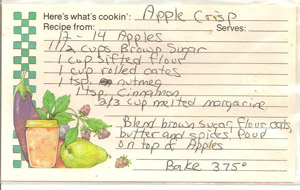 Here's what's cookin': Apple Crisp
Recipe from: Serves:
12 - 14 Apples
1 1/2 cups Brown Sugar
1 cup sifted flour
1 cup rolled oates
1 tsp. nutmeg
1 tsp. Cinnamon
2/3 cup melted margarine
Blend brown sugar, flour, oats,
butter and spices. Pour
on top of Apples
Bake 375°